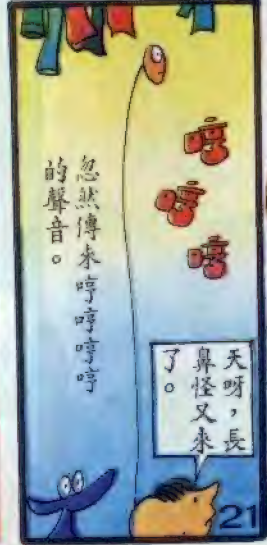 哼
哼
哼
忽然傳來哼哼哼哼
的聲音。
天呀，長
鼻怪又來
了。
21